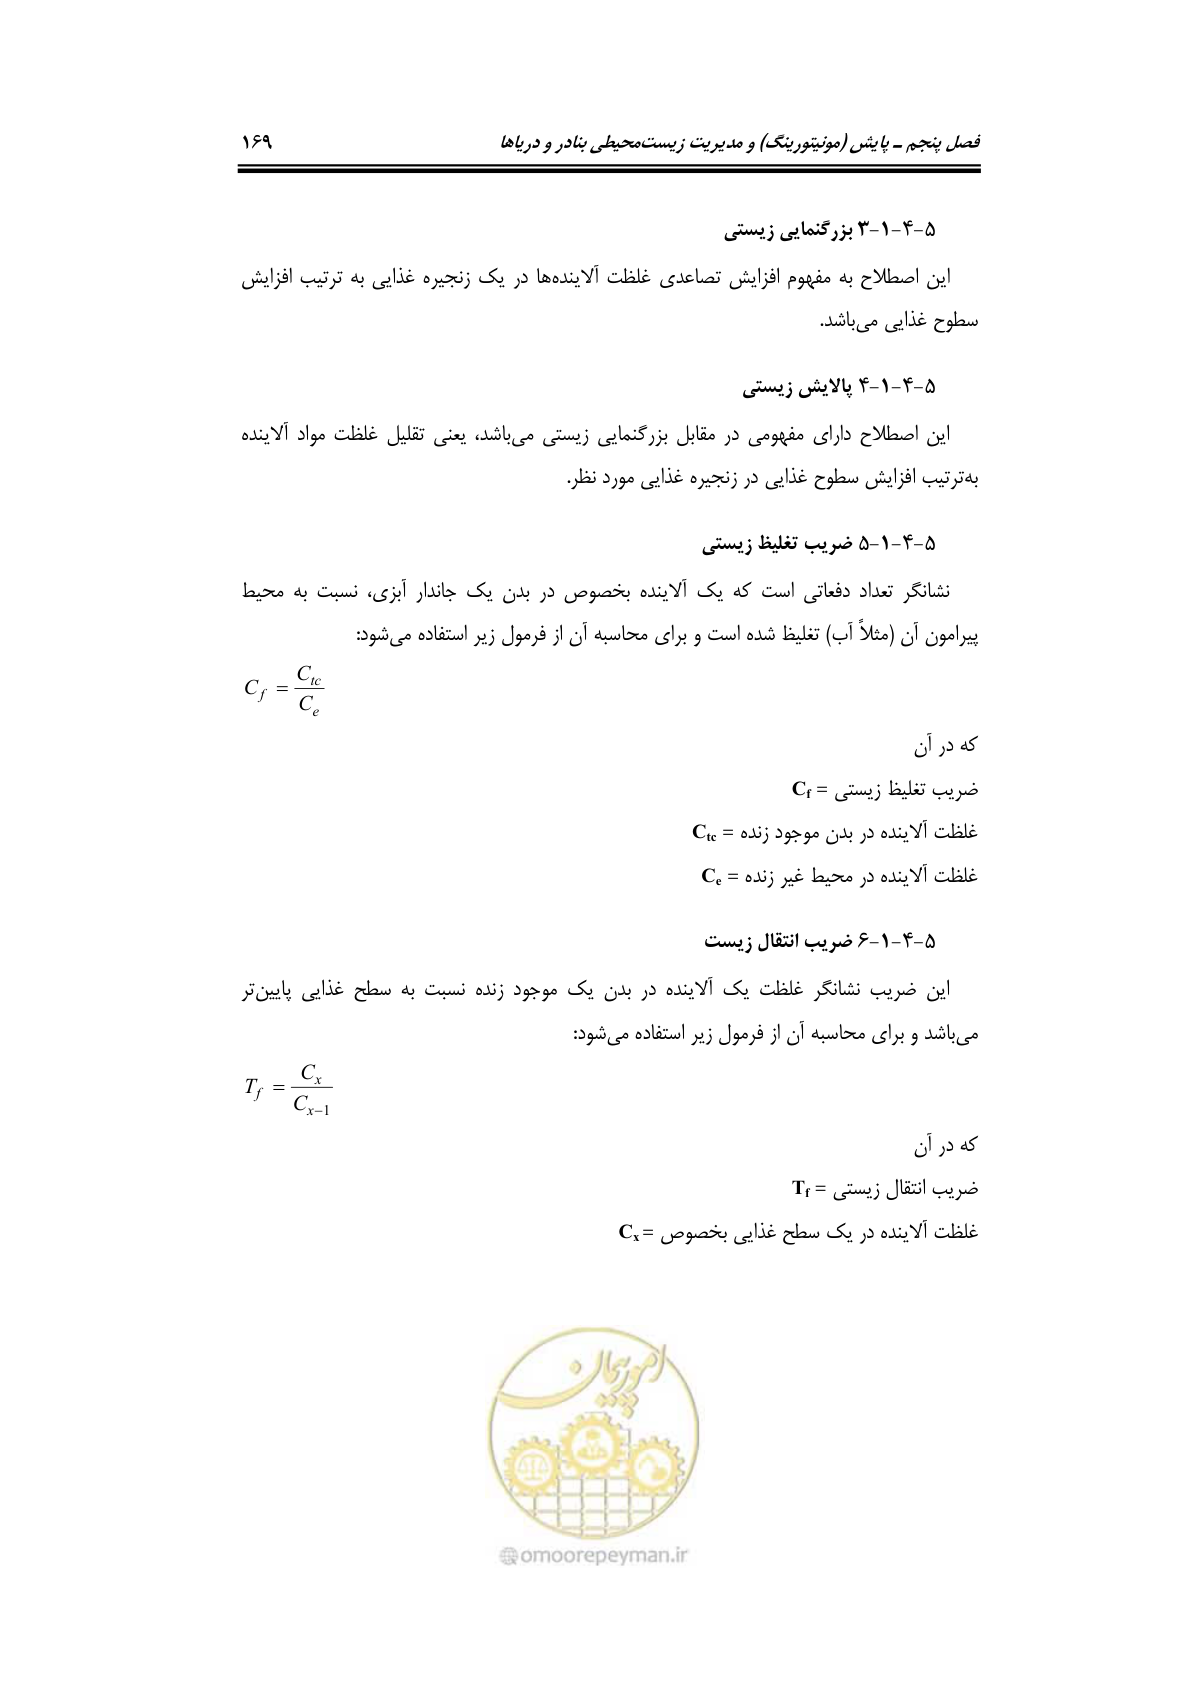 فصل پنجم ـ پایش (مونیتورینگ) و مدیریت زیست‌محیطی بنادر و دریاها ۱۶۹
۵-۴-۱-۳ بزرگنمایی زیستی
این اصطلاح به مفهوم افزایش تصاعدی غلظت آلاینده‌ها در یک زنجیره غذایی به ترتیب افزایش
سطوح غذایی می‌باشد.
۵-۴-۱-۴ پالایش زیستی
این اصطلاح دارای مفهومی در مقابل بزرگنمایی زیستی می‌باشد، یعنی تقلیل غلظت مواد آلاینده
به‌ترتیب افزایش سطوح غذایی در زنجیره غذایی مورد نظر.
۵-۴-۱-۵ ضریب تغلیظ زیستی
نشانگر تعداد دفعاتی است که یک آلاینده بخصوص در بدن یک جاندار آبزی، نسبت به محیط
پیرامون آن (مثلاً آب) تغلیظ شده است و برای محاسبه آن از فرمول زیر استفاده می‌شود:
C_f = C_tc / C_e
که در آن
ضریب تغلیظ زیستی = C_f
غلظت آلاینده در بدن موجود زنده = C_tc
غلظت آلاینده در محیط غیر زنده = C_e
۵-۴-۱-۶ ضریب انتقال زیست
این ضریب نشانگر غلظت یک آلاینده در بدن یک موجود زنده نسبت به سطح غذایی پایین‌تر
می‌باشد و برای محاسبه آن از فرمول زیر استفاده می‌شود:
T_f = C_x / C_x−1
که در آن
ضریب انتقال زیستی = T_f
غلظت آلاینده در یک سطح غذایی بخصوص = C_x
امور پیمان
omoorepeyman.ir